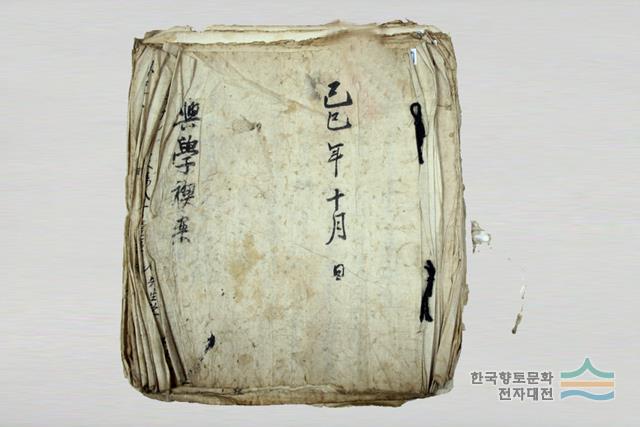 己巳年十月 日
興學稧案
한국향토문화
전자대전